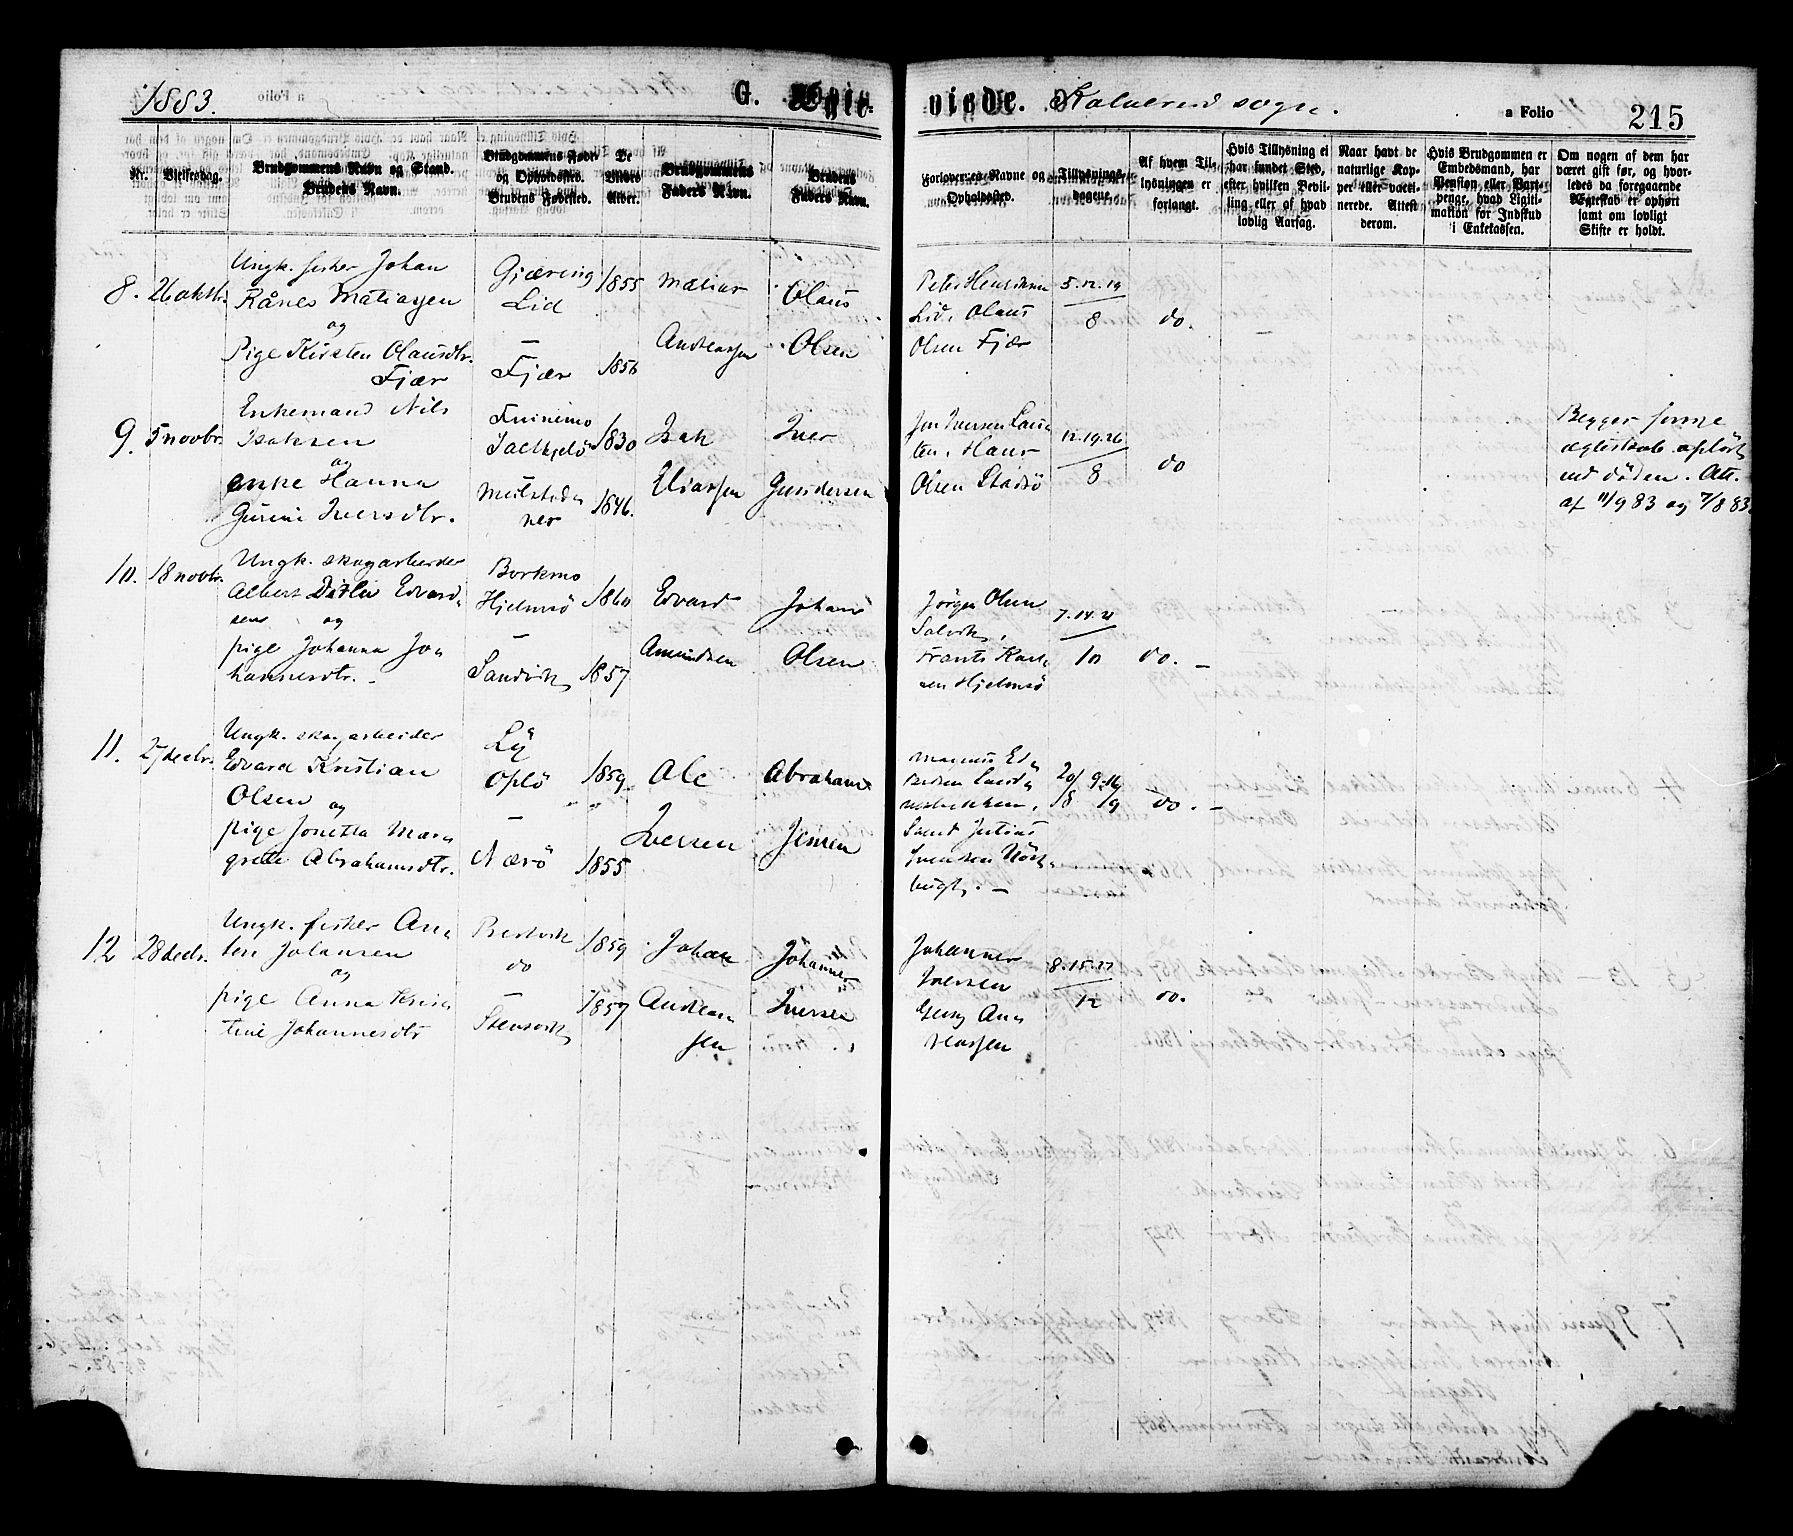 1883.
G. Egte-
viede. Kolvereid sogn.
a Folio 215
Nr.
Vielsesdag.
Brudgommens Navn og Stand.
Brudens Navn.
Brudgommens Føde-
og Opholdssted.
Brudens Fødested.
De
Viedes
Alder.
Brudgommens
Faders Navn.
Brudens
Faders Navn.
Forlovernes Navne og
Opholdssted.
Tillysnings-
dagene.
Af hvem Til-
lysningen er
forlangt.
Hvis Tillysning ei
har fundet Sted,
efter hvilken Bevil-
ling eller af hvad
lovlig Aarsag.
Naar havt de
naturlige Kop-
per eller vacci-
nerede. Attest
derom.
Hvis Brudgommen er
Embedsmand, har
Pension eller Varte-
penge, hvad Ligiti-
mation for Indskud
i Enkekassen.
Om nogen af dem har
været gift før, og hvor-
ledes da foregaaende
Ægteskab er ophørt
samt om lovligt
Skifte er holdt.
8. 26 oktbr.
Ungk. fisker Johan
Rånes Matiassen
og
Pige Kirsten Olausdtr.
Fjær
Gjæring
Lid
–
Fjær
1855
1856
Matias
Andreassen
Olaus
Olsen
Peter Hendriksen
Lid, Olaus
Olsen Fjær
5.12.19
8
do.
9. 5 novbr.
Enkemand Nils
Isaksen
og
enke Hanna
Gurine Iversdtr.
1830
1846.
Isak
Eliassen
Iver
Gundersen
Jon Iversen
Hans
Olsen
12.19.26
8
do
Begges forrige
ægteskab opløst
ved døden. Att.
af 11/9 83 og 7/8 83.
10. 18 novbr.
Ungk. skogarbeider
Albert Ditlev Edvard-
sen og
pige Johanna Jo-
hannesdtr. –
Borkmo
Hjelmsö
–
Sandvik
1860
1857
Edvard
Amundsen
Johans
Olsen
Jörgen Olsen
Salvik,
Frants Karl-
sen Hjelmsö
7.14.21
10
do. –
11. 27 decbr.
Ungk. skogarbeider
Edvard Kristian
Olsen og
pige Jonetta Mar-
grete Abrahamsdtr.
Lø
Oplö
–
Nærö
1859
1855
Ole
Iversen
Abraham
Jensen
Magnus Ed-
Julius
Svensen
20/ 9.16
18 19
do. –
12 28 decbr.
Ungk. fisker An-
ton Johansen
og
pige Anna Kris-
tine Johannesdtr
do
–
Stensvik
1859
1857
Johan
Andrea-
sen
Johannes
Iversen
Johannes
Iversen
Georg An-
reassen
8.15.22
12
do.